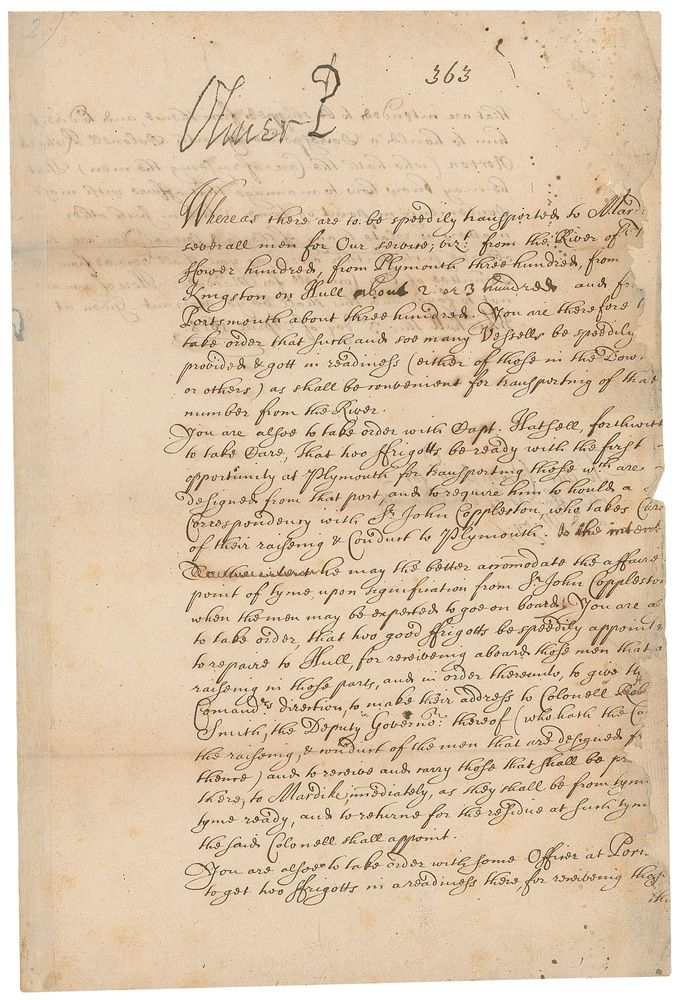 2
363
Oliver P
Whereas there are to be speedily transported to Mard
severall men for Our service; vizt: from the River of
ffower hundred, from Plymouth three hundred, from
Kingston on Hull about 2 or 3 hundred and fr
Portsmouth about three hundred. You are therefore t
take order that such and soe many Vessells be speedily
provided & gott in readiness (either of those in the Dow
or others) as shall be convenient for transporting of that
number from the River.
You are alsoe to take order with Capt. Hatsell, forthwith
to take Care, That two ffrigotts be ready with the first
opportunity at Plymouth for transporting those wch are
designed from that port and to require him to hould a
Correspondency with Sr. John Coppleston, who takes Care
of their raiseing & Conduct to Plymouth. to the intent
To the intent he may the better accomodate the affaire
point of tyme upon signification from Sr John Coppleston
when the men may be expected to goe on board. You are al
to take order, that two good ffrigotts be speedily appoint
to repaire to Hull, for receiveing aboard those men that a
raiseing in those parts, and in order thereunto, to give th
Comandrs direction, to make their address to Colonell
Smith, the Deputy Governor: thereof (who hath the
the raiseing, & conduct of the men that are designed fr
thence) and to receive and carry those that shall be
there, to Mardike, imediately, as they shall be from tyme
tyme ready, and to returne for the residue at such tym
the said Colonell shall appoint.
You are alsoe to take order with some Officer at Ports
to get two ffrigotts in a readiness there, for receiveing those